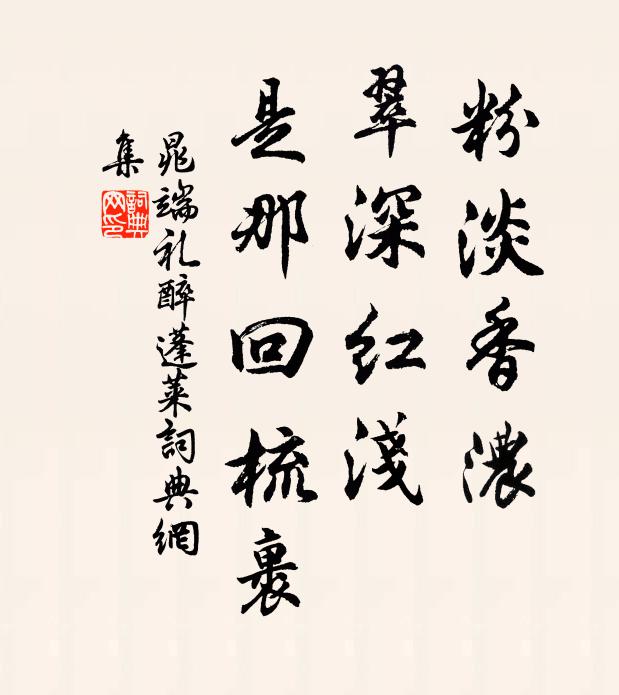 粉淡香濃
翠深紅淺
是那回梳裹
晁端礼醉蓬萊詞典網
集
詞典
网印